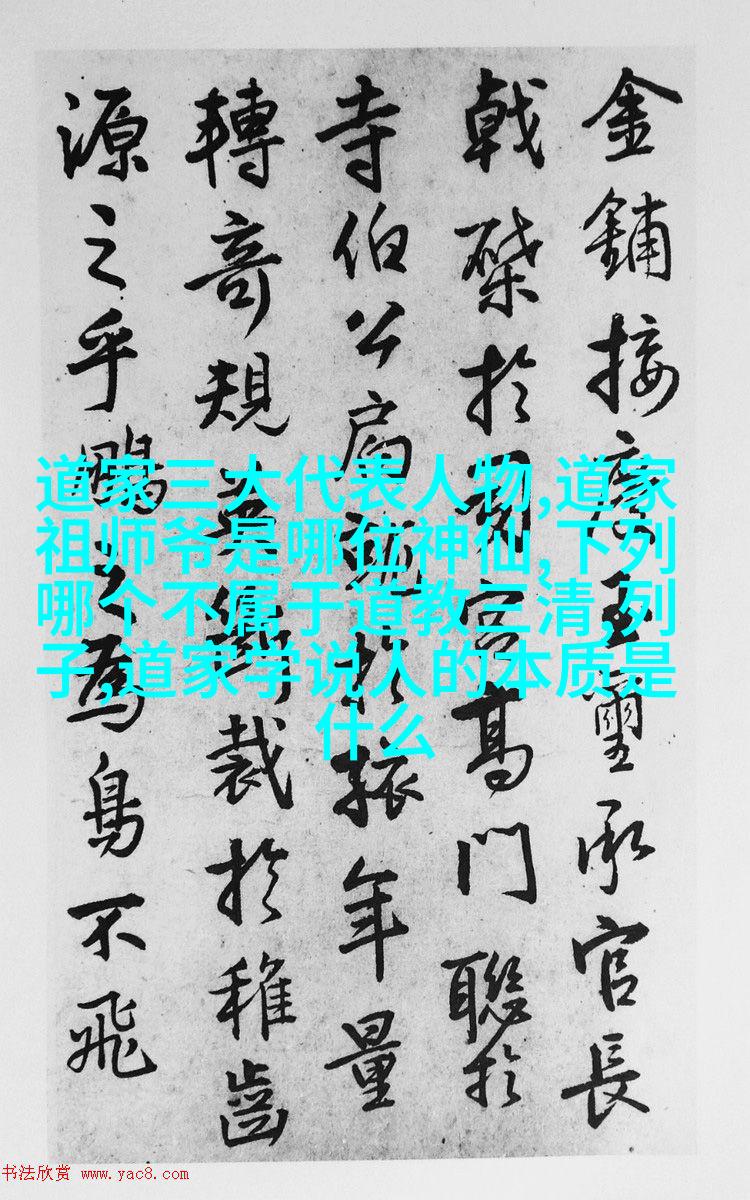 金鋪接慶玉璽承官長
戟棨於蜀宮高門聯於
寺伯公扃就於振年量
轉奇規裁於稚齒
源之乎鵬之為鳥不飛
道家三大代表人物,道家
祖师爷是哪位神仙,下列
哪个不属于道教三清,列
子,道家学说人的本质是
什么
书法欣赏 www.yac8.com